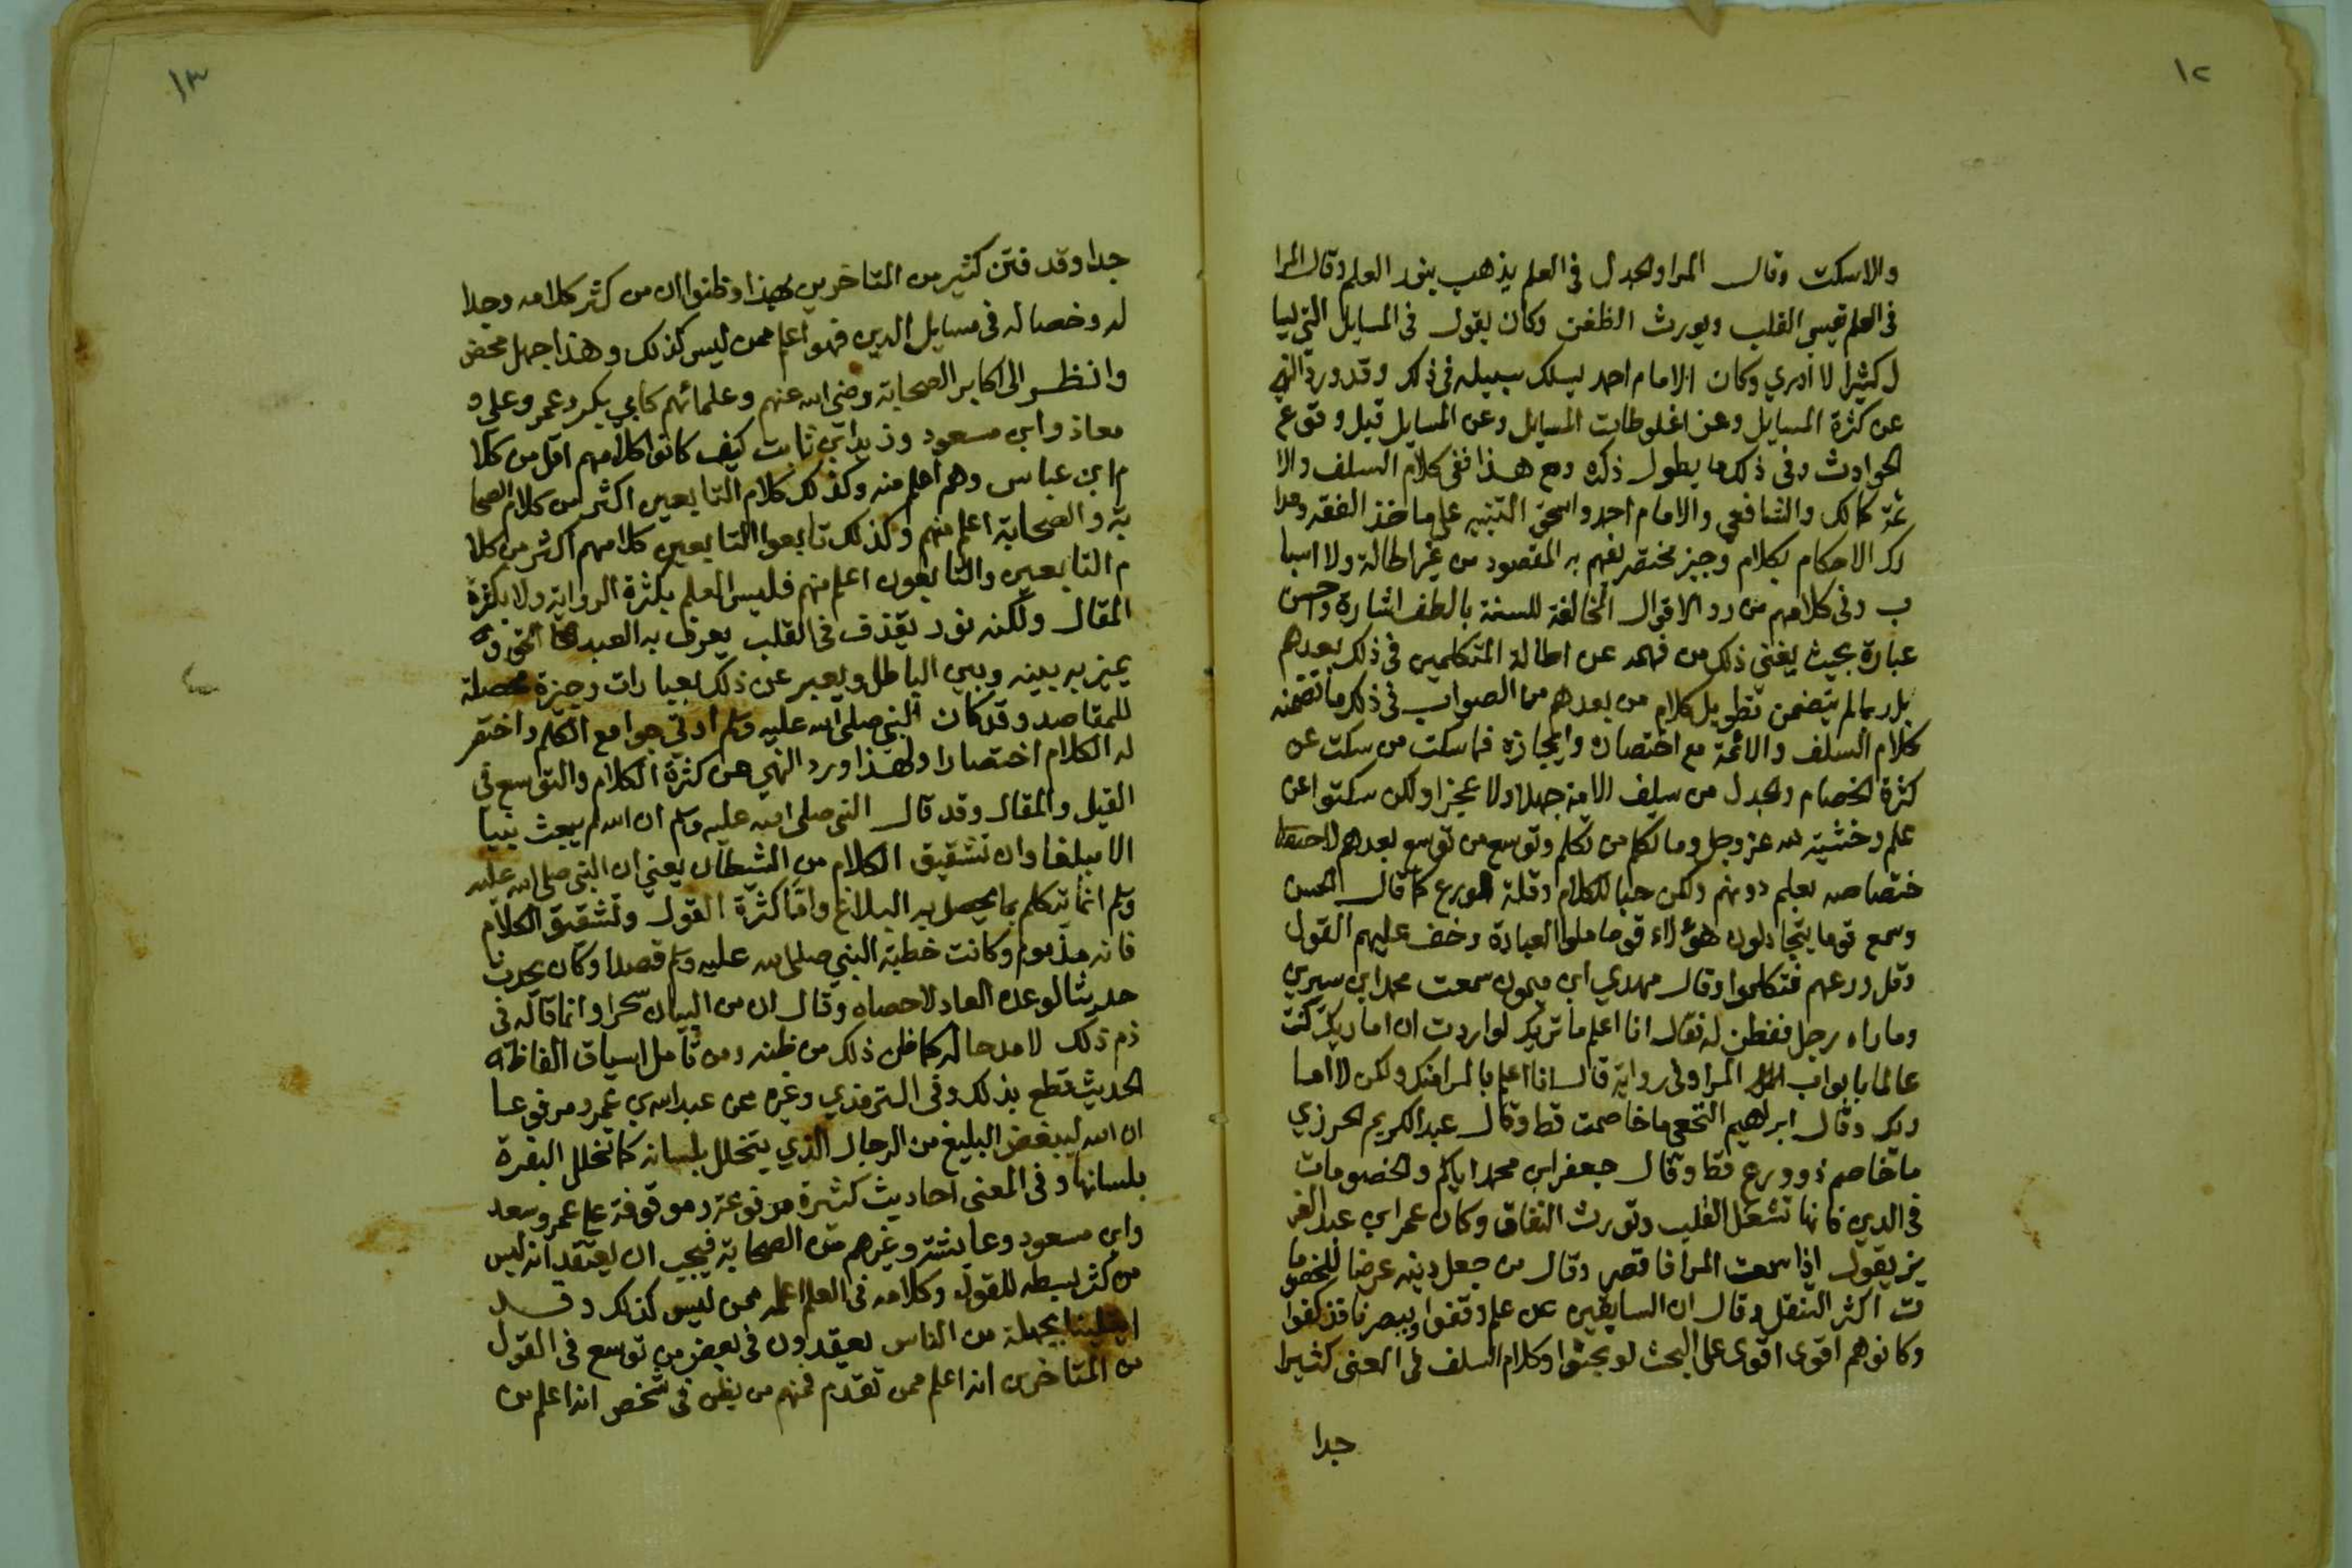 ١٢
والاسكت وقال المرا والجدل في العلم يذهب بنور العلم وقال المرا
في العلم تقيسي القلب ويورث الظغن وكان يقول في المسايل التي ليسا
ل كثيرا لا أدري وكان الامام احمد يسلك سبيله في ذلك وقد ورد النهي
عن كثرة المسايل وعن اغلوطات المسايل وعن المسايل قبل وقوع
الحوادث وفي ذلك ما يطول ذكره ومع هذا ففي كلام السلف والا
ئمة كمالك والشافعي والامام احمد واسحق التنبيه على ماخذ الفقه ومدا
رك الاحكام بكلام وجيز مختصر يفهم به المقصود من غير اطالة ولا اسها
ب وفي كلامهم من رد الاقوال المخالفة للسنة بالطف اشارة واحسن
عبارة بحيث يغني ذلك من فهمه عن اطالة المتكلمين في ذلك بعدهم
بل ربما لم يتضمن تطويل كلام من بعدهم من الصواب في ذلك ما تضمنه
كلام السلف والائمة مع اختصاره وايجازه فما سكت من سكت عن
كثرة الخصام والجدل من سلف الامة جهلا ولا عجزا ولكن سكتوا عن
علم وخشية لله عز وجل وما تكلم من تكلم وتوسع من توسع بعدهم
ختصاصه بعلم دونهم ولكن حبا للكلام وقلة الورع كما قال الحسن
وسمع قوما يتجادلون هؤلاء قوما ملوا العبادة وخف عليهم القول
وقل ورعهم فتكلموا وقال مهدي ابن ميمون سمعت محمد ابن سيرين
وماراه رجل ففطن له فقال انا اعلم ما تريد لو اردت ان اماريك كنت
عالما بابواب المرا وفي رواية قال انا اعلم بالمرا منك ولكن لا اما
ريك وقال ابراهيم النخعي ما خاصمت قط وقال عبد الكريم الحرزي
ما خاصم ذو ورع قط وقال جعفر ابن محمد اياكم والخصومات
في الدين فانها تشغل القلب وتورث النفاق وكان عمر ابن عبد العز
يز يقول اذا سمعت المرا فاقصر وقال من جعل دينه عرضا للخصوما
ت اكثر التنقل وقال ان السابقين عن علم وقفوا وببصر نافذ كفوا
وكانوا هم اقوى اقوى على البحث لو بحثوا وكلام السلف في المعنى كثيرا
جدا
١٣
جدا وقد فتن كثير من المتاخرين بهذا وظنوا ان من كثر كلامه وجدا
له وخصاله في مسايل الدين فهو اعلم ممن ليس كذلك وهذا جهل محض
وانظر الى اكابر الصحابة رضي الله عنهم وعلمائهم كابي بكر وعمر وعلي و
معاذ وابن مسعود وزيد ابن ثابت كيف كانوا كلامهم اقل من كلا
م ابن عباس وهم اعلم منه وكذلك كلام التابعين اكثر من كلام الصحا
بة والصحابة اعلم منهم وكذلك تابعوا التابعين كلامهم اكثر من كلا
م التابعين والتابعون اعلم منهم فليس العلم بكثرة الرواية ولا بكثرة
المقال ولكنه نور يقذف في القلب يعرف به العبد الحق و
يميز به بينه وبين الباطل ويعبر عن ذلك بعبارات وجيزة محصلة
للمقاصد وقد كان النبي صلى الله عليه وسلم اوتي جوامع الكلم واختصر
له الكلام اختصارا ولهذا ورد النهي عن كثرة الكلام والتوسع في
القيل والمقال وقد قال النبي صلى الله عليه وسلم ان الله لم يبعث نبيا
الا مبلغا وان تشقيق الكلام من الشيطان يعني ان النبي صلى الله عليه
وسلم انما يتكلم بما يحصل به البلاغ واما كثرة القول وتشقيق الكلام
فانه مذموم وكانت خطبة النبي صلى الله عليه وسلم قصدا وكان يحدث
حديثا لو عده العاد لاحصاه وقال ان من البيان سحرا وانما قاله في
ذم ذلك لا مدحا له كما ظن ذلك من ظنه ومن تامل سياق الفاظ
الحديث قطع بذلك وفي الترمذي وغيره عن عبد الله بن عمرو مرفوعا
ان الله ليبغض البليغ من الرجال الذي يتخلل بلسانه كما تخلل البقرة
بلسانها وفي المعنى احاديث كثيرة مرفوعة وموقوفة على عمر وسعد
وابن مسعود وعايشة وغيرهم من الصحابة فيجب ان يعتقد انه ليس
من كثر بسطه للقول وكلامه في العلم اعلم ممن ليس كذلك وقد
ابتلينا بجهلة من الناس يعقدون في بعض من توسع في القول
من المتاخرين انه اعلم ممن تقدم فمنهم من يظن في شخص انه اعلم من